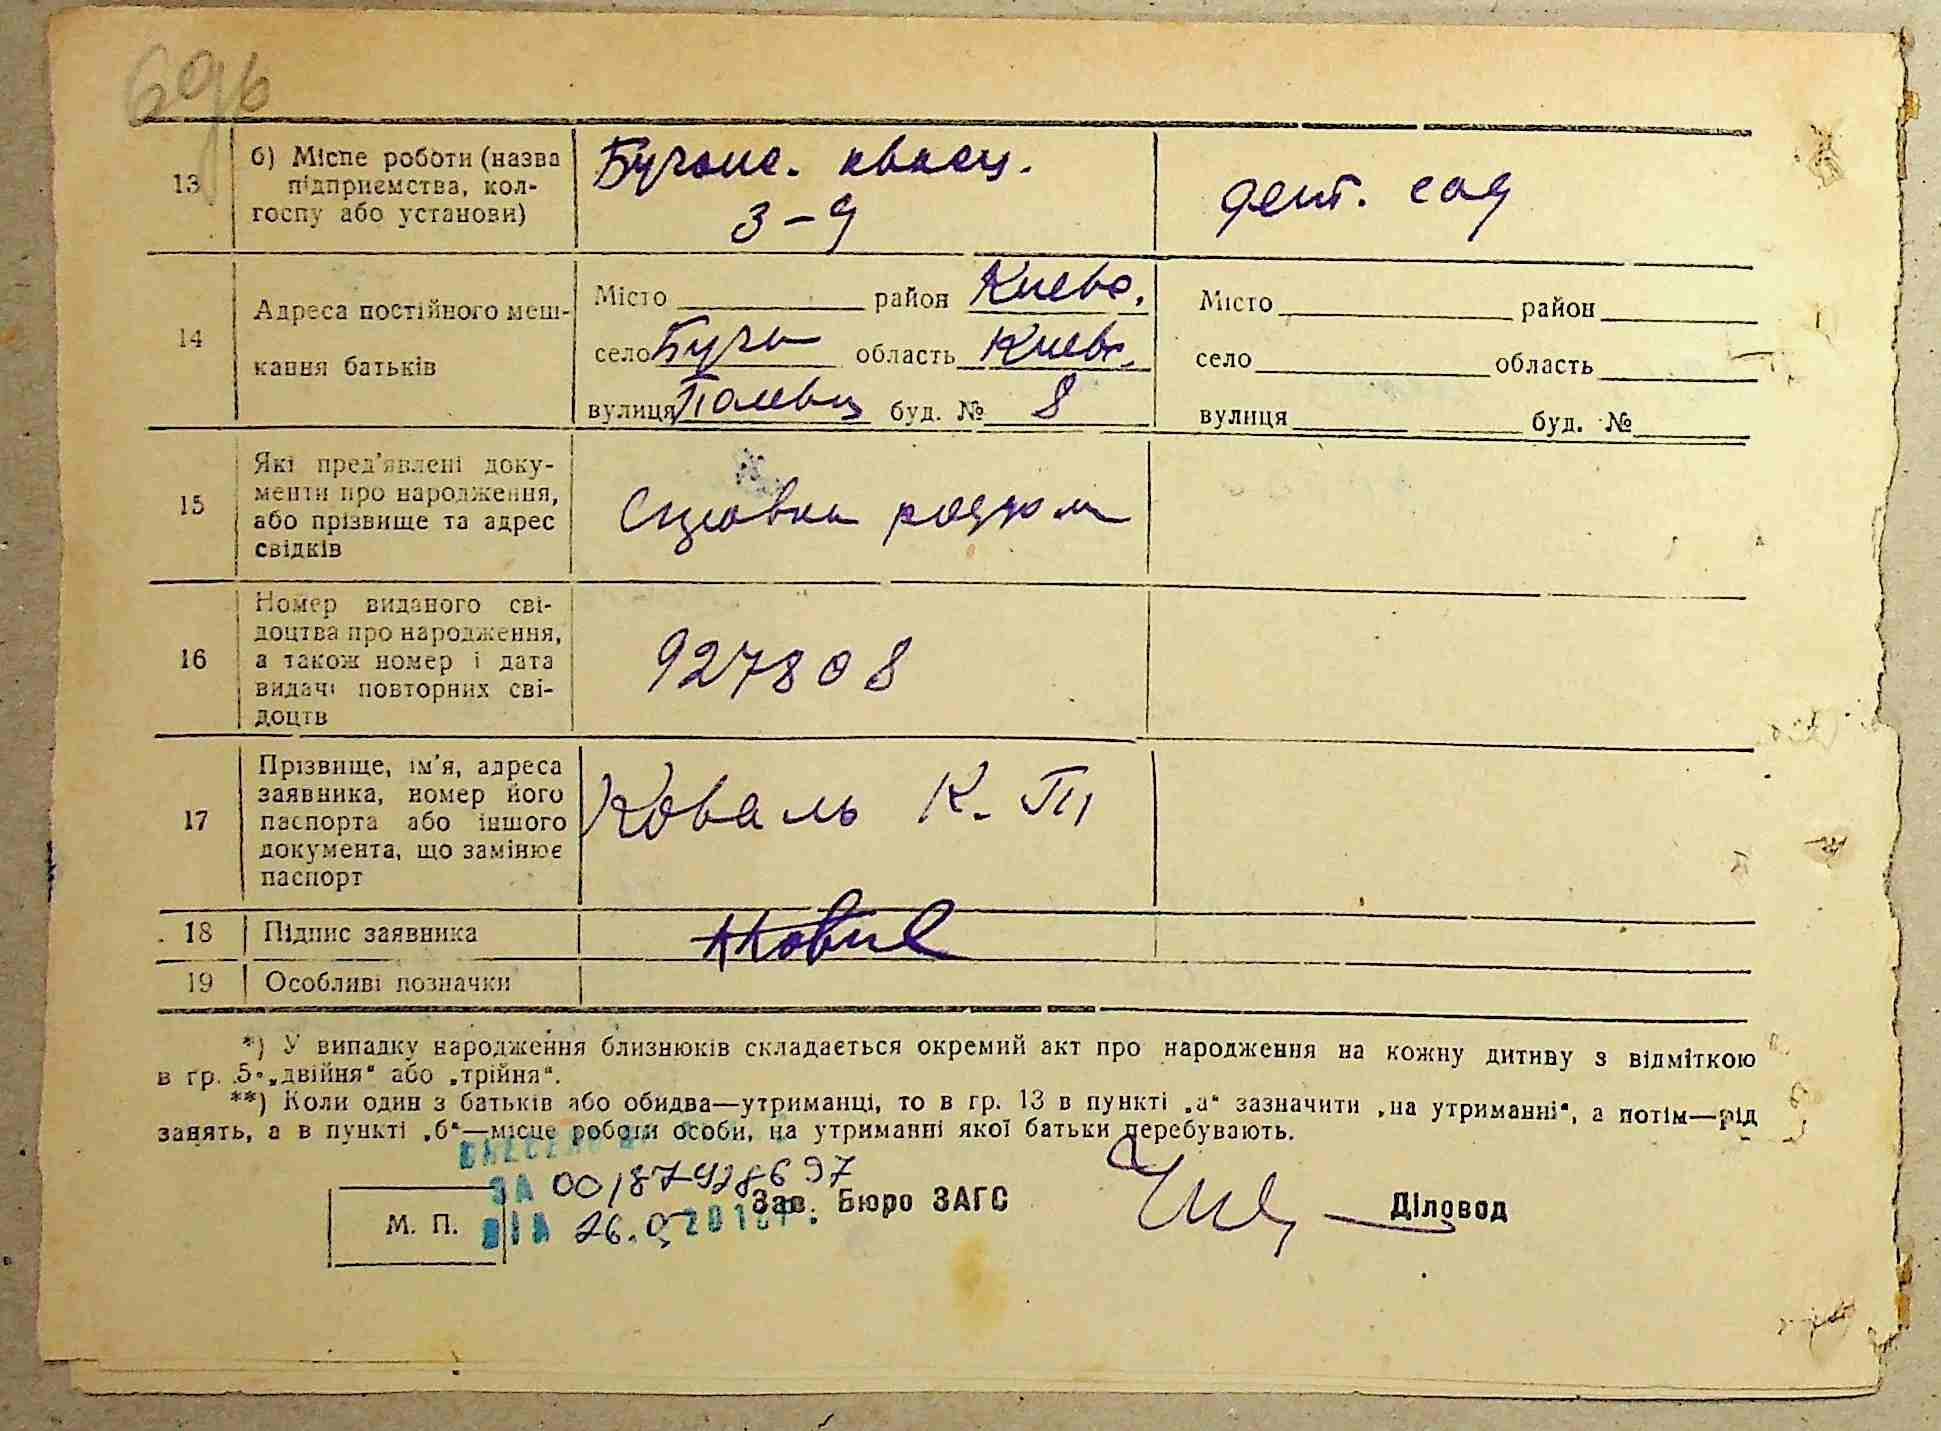 13 б) Місце роботи (назва
підприємства, кол-
госпу або установи)
3-д
сад
14 Адреса постійного меш-
кання батьків
Місто район Киевс.
село Буча область Киевс.
вулиця Полевая буд. № 8
Місто район
село область
вулиця буд. №
15 Які пред'явлені доку-
менти про народження,
або прізвище та адрес
свідків
Справка роддома
16 Номер виданого сві-
доцтва про народження,
а також номер і дата
видачі повторних сві-
доцтв
927808
17 Прізвище, ім'я, адреса
заявника, номер його
паспорта або іншого
документа, що замінює
паспорт
Коваль К. П
18 Підпис заявника
19 Особливі позначки
*) У випадку народження близнюків складається окремий акт про народження на кожну дитину з відміткою
в гр. 5 „двійня“ або „трійня“.
**) Коли один з батьків або обидва—утриманці, то в гр. 13 в пункті „а“ зазначити „на утриманні“, а потім—рід
занять, а в пункті „б“—місце роботи особи, на утриманні якої батьки перебувають.
ЗА
М. П.
ВІД 26.
Зав. Бюро ЗАГС
Діловод